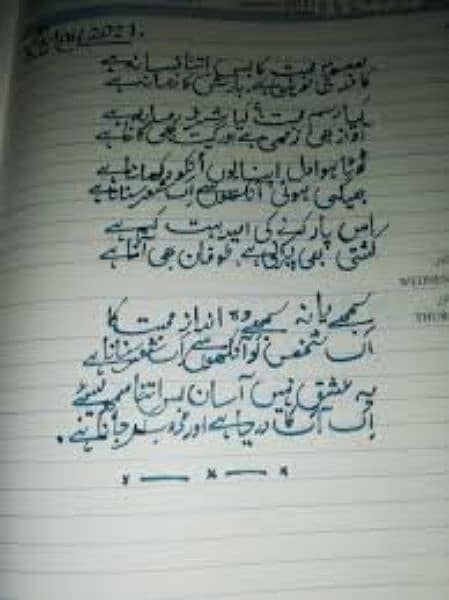 April, 2021.
معصوم محبت کا بس اتنا فسانہ ہے
کاغذ کی حویلی ہے بارش کا زمانہ ہے
کیا رسم محبت ہے کیا شرط زمانہ ہے
آواز بھی زخمی ہے اور گیت بھی گانا ہے
ٹوٹا ہوا دل اپنا یوں اُنکو دکھانا ہے
بھیگی ہوئی آنکھوں سے اِک شعر سنانا ہے
اُس پار کرنے کی امید بہت کم ہے
کشتی بھی پرانی ہے طوفان بھی آنا ہے
سمجھے یا نہ سمجھے وہ انداز محبت کا
اک شخص کو آنکھوں سے اک شعر سنانا ہے
یہ عشق نہیں آسان بس اتنا سمجھ لیجئے
اِک آگ کا دریا ہے اور جانا ہے
WEDN
THUR